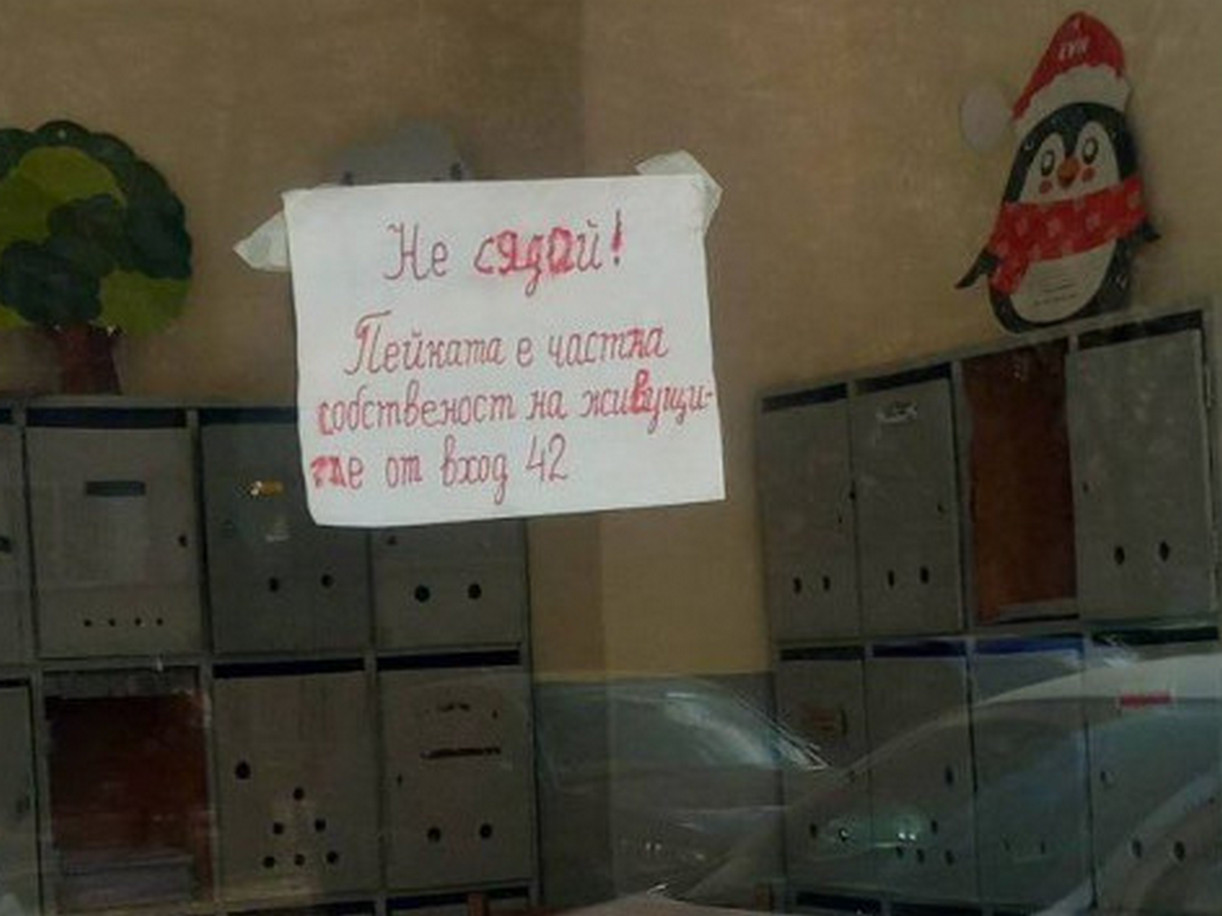 EVN
Не сядай!
Пейката е частна
собственост на живущи-
те от вход 42